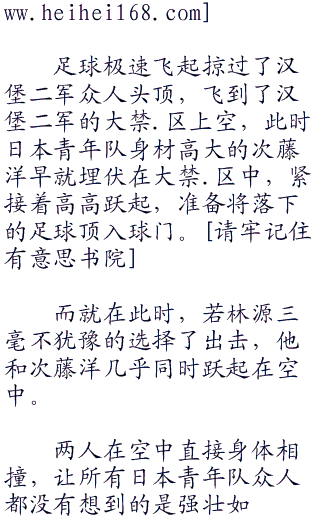 ww.heihei168.com]
足球极速飞起掠过了汉
堡二军众人头顶，飞到了汉
堡二军的大禁.区上空，此时
日本青年队身材高大的次藤
洋早就埋伏在大禁.区中，紧
接着高高跃起，准备将落下
的足球顶入球门。[请牢记住
有意思书院]
而就在此时，若林源三
毫不犹豫的选择了出击，他
和次藤洋几乎同时跃起在空
中。
两人在空中直接身体相
撞，让所有日本青年队众人
都没有想到的是强壮如